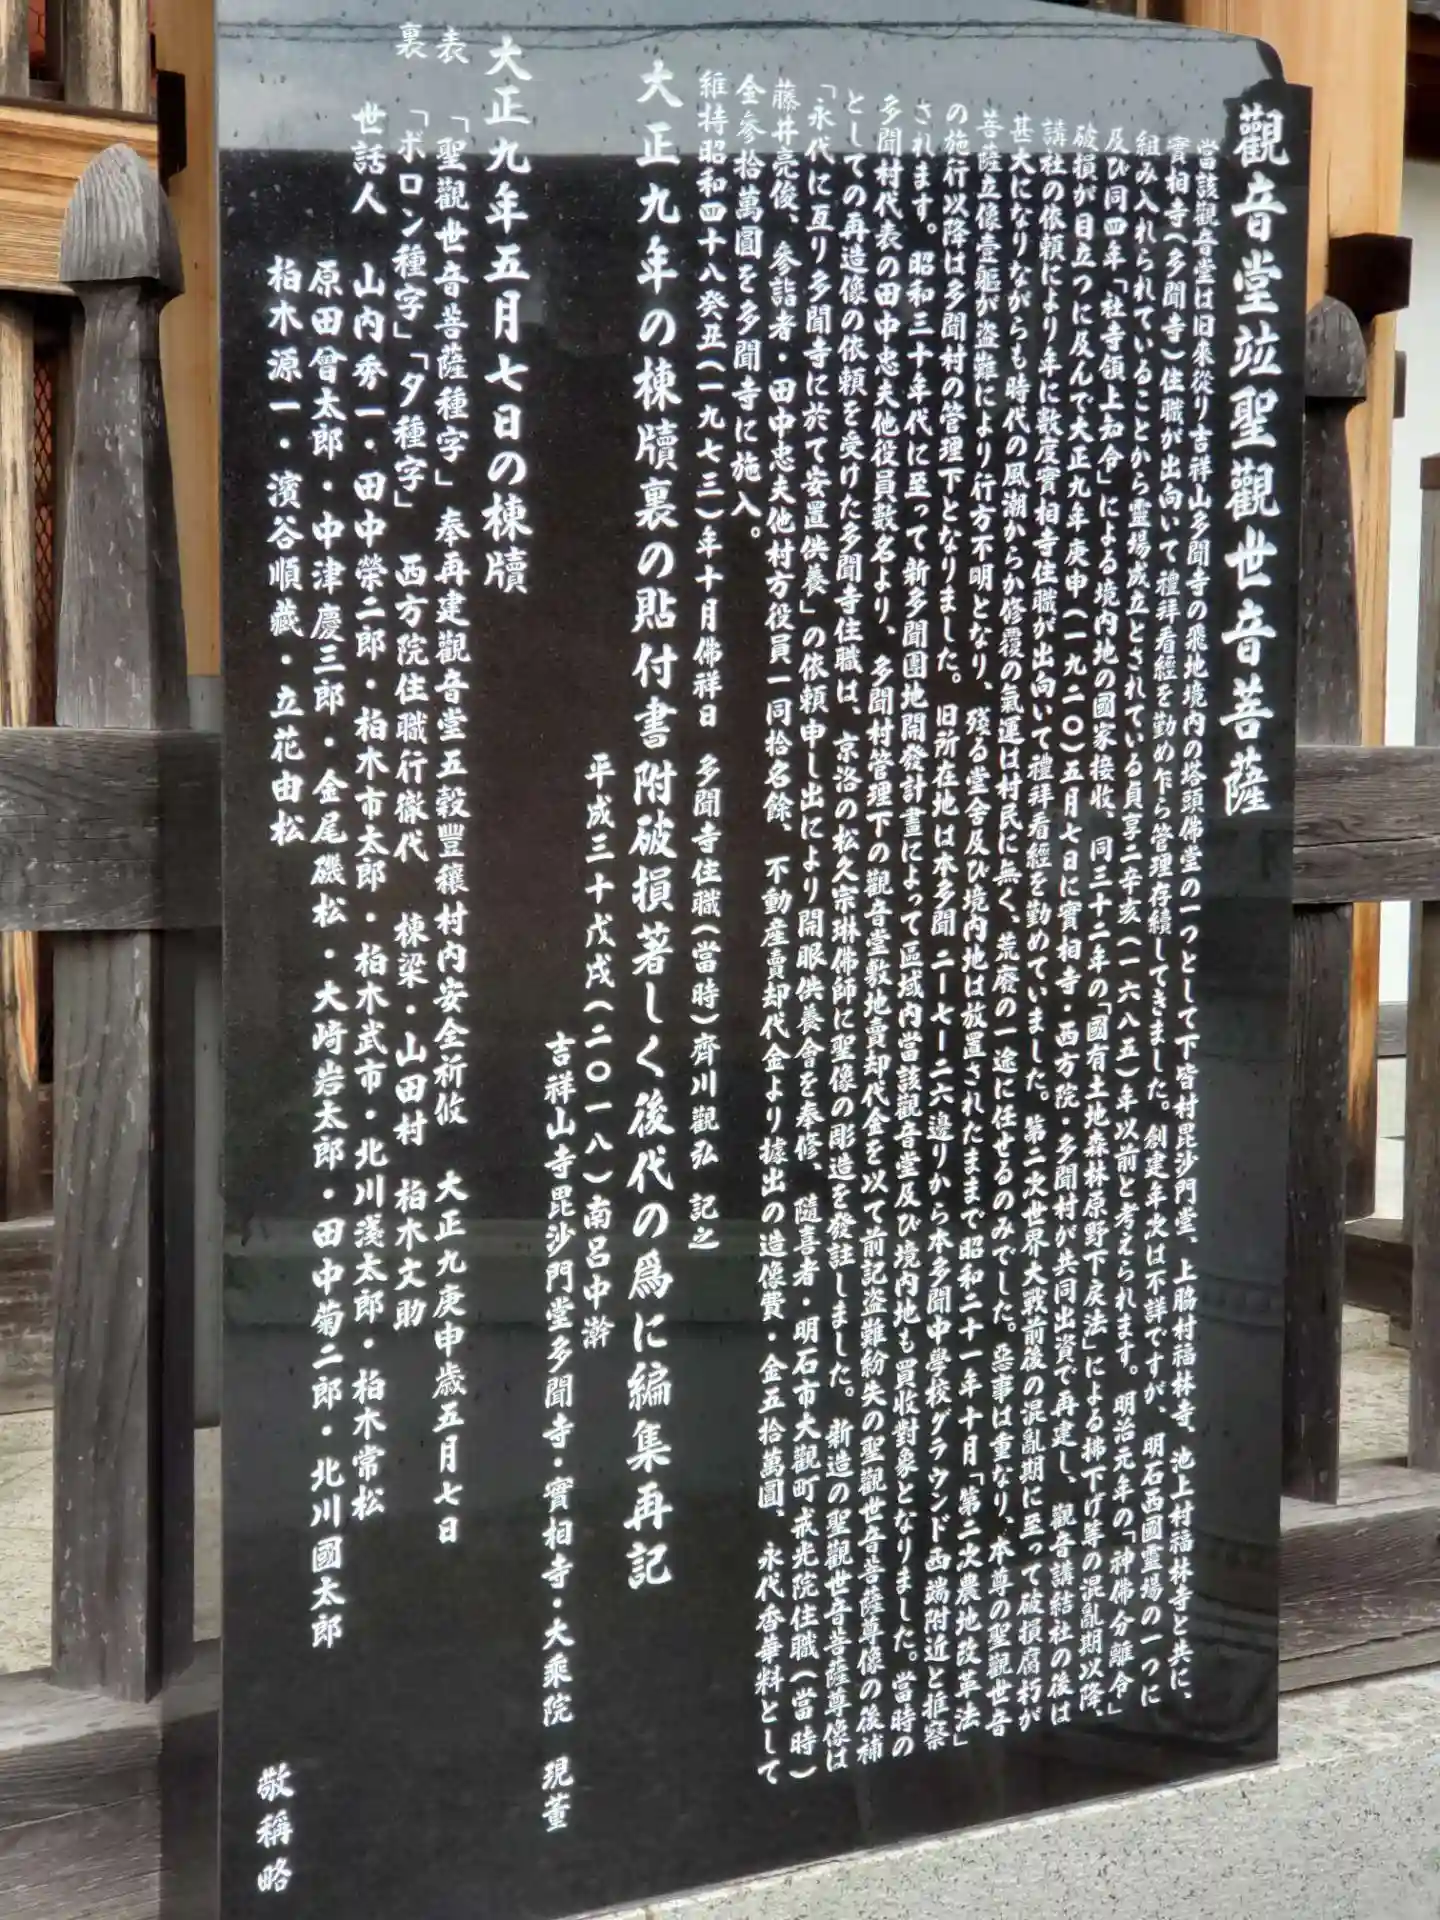 觀音堂竝聖觀世音菩薩
當該觀音堂は旧来從り吉祥山多聞寺の飛地境内の塔頭佛堂の一つとして下皆村毘沙門堂、上脇村福林寺、池上村福林寺と共に、
實相寺(多聞寺)住職が出向いて禮拜看經を勤め乍ら管理存續してきました。創建年次は不詳ですが、明石西國靈場の一つに
組み入れられていることから靈場成立とされている貞享二辛亥(一六八五)年以前と考えられます。明治元年の「神佛分離令」
及び同四年「社寺領上知令」による境内地の國家接收、同三十二年の「國有土地森林原野下戻法」による拂下げ等の混亂期以降、
破損が目立つに及んで大正九年庚申(一九二〇)五月七日に實相寺・西方院・多聞村が共同出資で再建し、觀音講結社の後は
講社の依頼により年に數度實相寺住職が出向いて禮拜看經を勤めていました。第二次世界大戰前後の混亂期に至って破損腐朽が
甚大になりながらも時代の風潮からか修覆の氣運は村民に無く、荒廢の一途に任せるのみでした。惡事は重なり、本尊の聖觀世音
菩薩立像壹軀が盜難により行方不明となり、殘る堂舍及び境内地は放置されたままで昭和二十一年十月「第二次農地改革法」
の施行以降は多聞村の管理下となりました。旧所在地は本多聞二ー七ー二六邊りから本多聞中學校グラウンド西端附近と推察
されます。昭和三十年代に至って新多聞團地開發計畫によって區域内當該觀音堂及び境内地も買收對象となりました。當時の
多聞村代表の田中忠夫他役員數名より、多聞村管理下の觀音堂敷地賣却代金を以て前記盜難紛失の聖觀世音菩薩尊像の後補
としての再造像の依頼を受けた多聞寺住職は、京洛の松久宗琳佛師に聖像の彫造を發註しました。新造の聖觀世音菩薩尊像は
「永代に亙り多聞寺に於て安置供養」の依頼申し出により開眼供養會を奉修、隨喜者・明石市大觀町戒光院住職(當時)
藤井亮俊、參詣者・田中忠夫他村方役員一同拾名餘、不動産賣却代金より據出の造像費・金五拾萬圓、永代香華料として
金參拾萬圓を多聞寺に施入。
維持昭和四十八癸丑(一九七三)年十月佛祥日 多聞寺住職(當時)齊川觀弘 記之
大正九年の棟牘裏の貼付書附破損著しく後代の爲に編集再記
平成三十戊戌(二〇一八)南呂中澣
吉祥山寺毘沙門堂多聞寺・實相寺・大乘院 現董
大正九年五月七日の棟牘
表 「聖觀世音菩薩種字」 奉再建觀音堂五穀豐穰村内安全祈攸 大正九庚申歳五月七日
裏 「ボロン種字」「タ種字」 西方院住職行徹代 棟梁・山田村 柏木文助
世話人 山内秀一・田中榮二郎・柏木市太郎・柏木武市・北川淺太郎・柏木常松
原田曾太郎・中津慶三郎・金尾磯松・大崎岩太郎・田中菊二郎・北川國太郎
柏木源一・濱谷順藏・立花由松
敬稱略